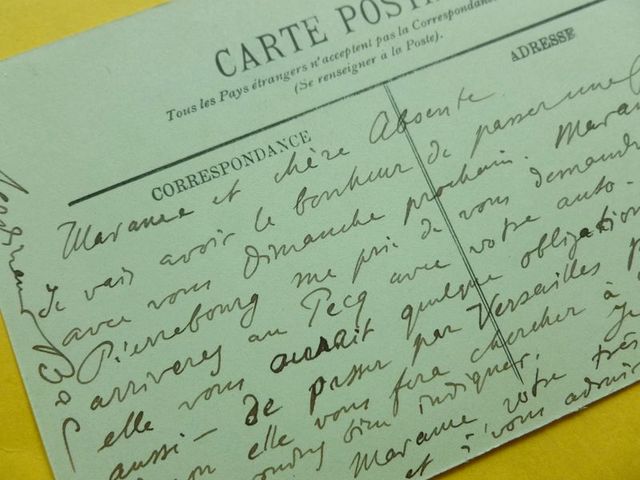 CARTE POST
Tous les Pays étrangers n'acceptent pas la Correspondance
(Se renseigner à la Poste).
CORRESPONDANCE
ADRESSE
Madame et chère Absente.
Je vais avoir le bonheur de passer une
avec vous dimanche prochain. Mada
Pierrebourg me prie de vous demand
arriverez au Pecq avec votre auto-
elle vous aurait quelque obligation
aussi - de passer par Versailles
elle vous fera chercher à
bien indiquer. Je
Madame votre très
et j'vous admir